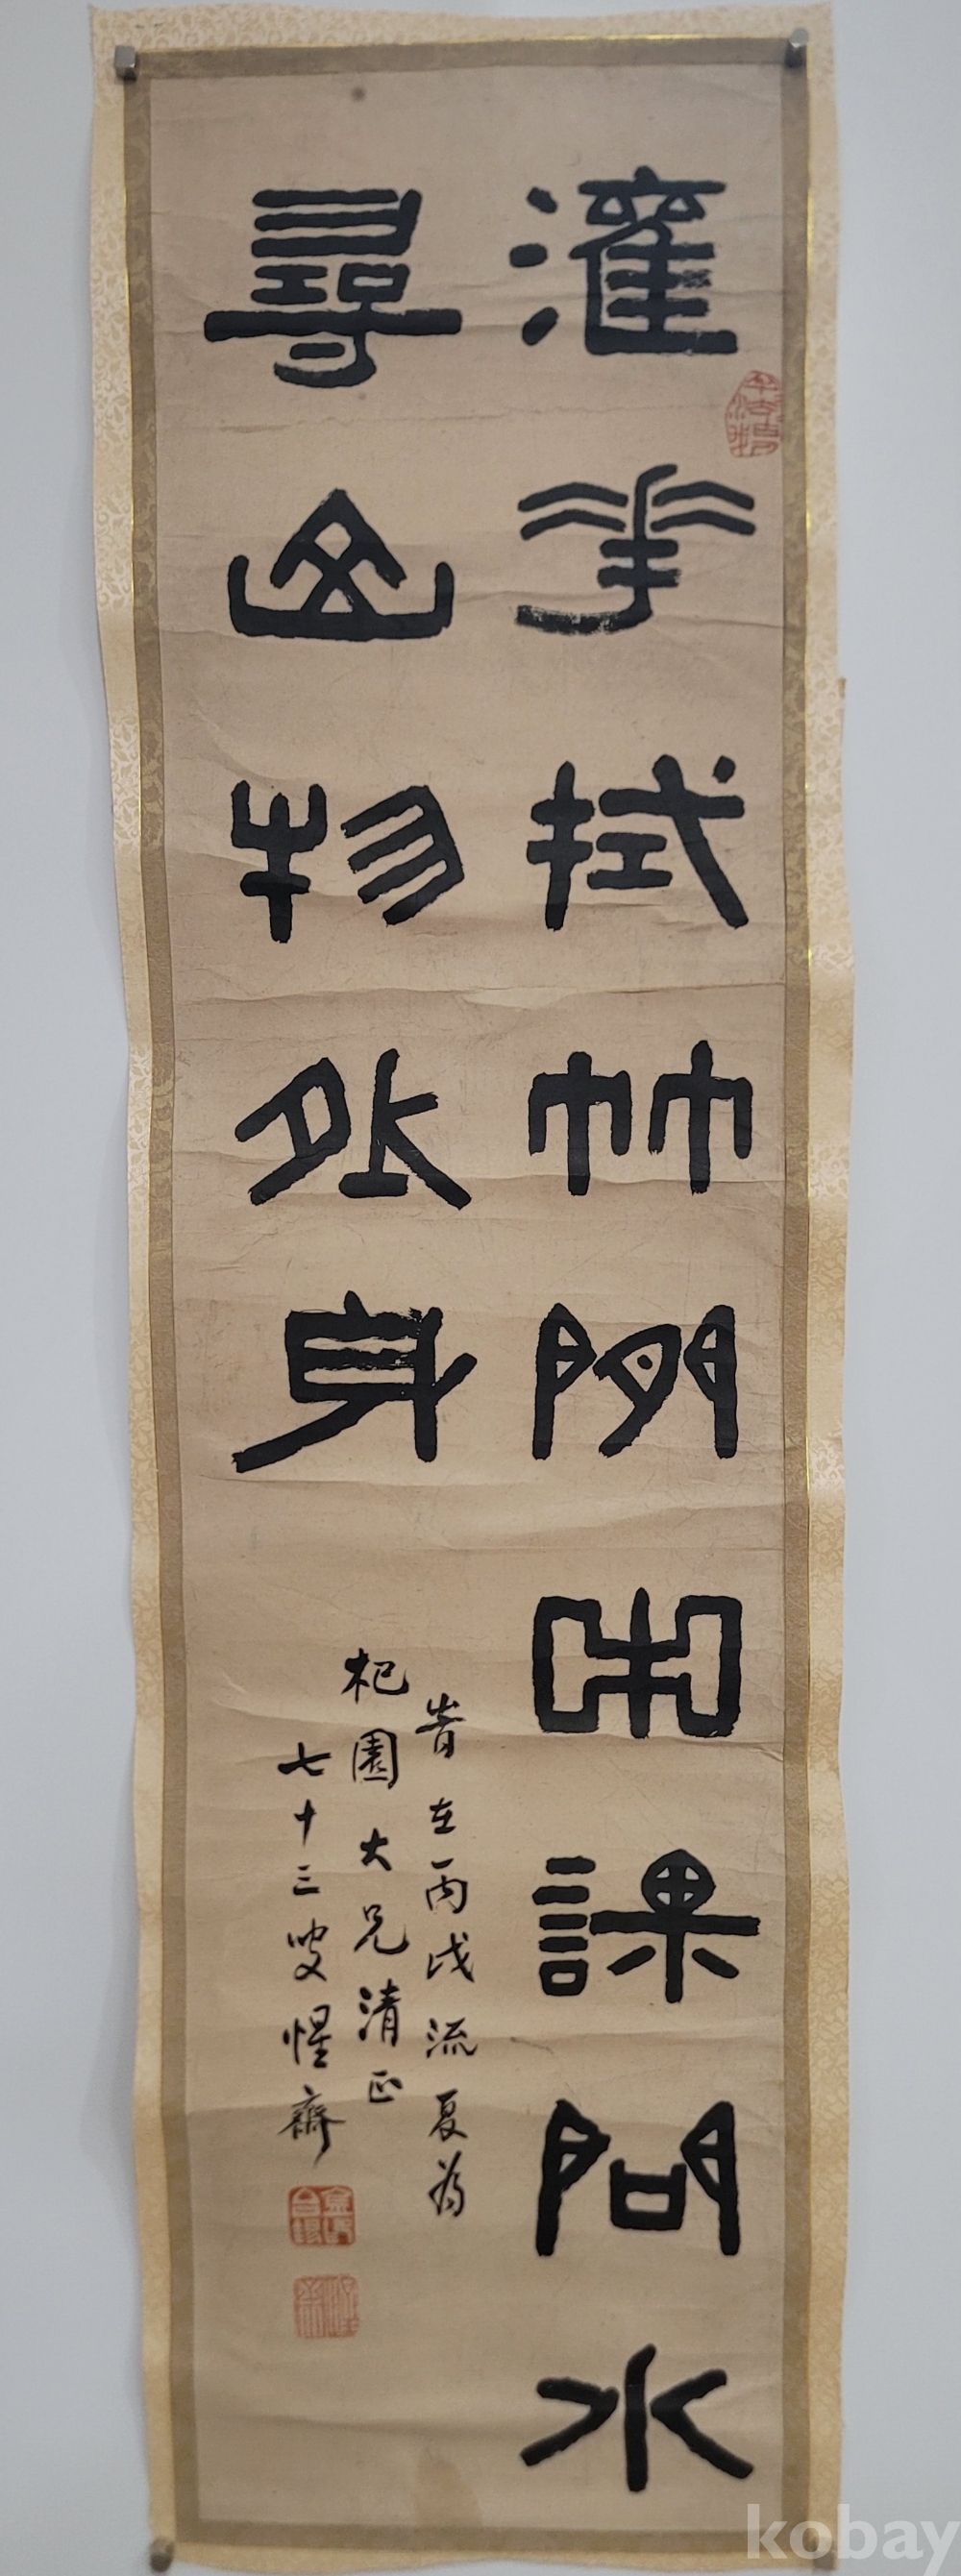 灌華拭竹閒中課問水
尋山物外身
旹在丙戌流夏為
杞園大兄清正
七十三叟惺齋
kobay